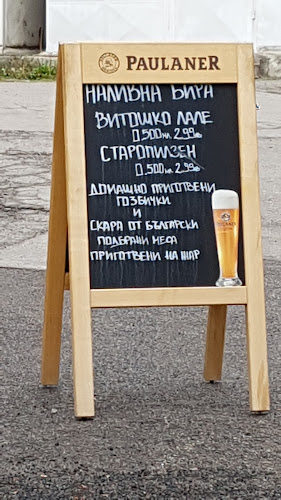 PAULANER
НАЛИВНА БИРА
ВИТОШКО ЛАЛЕ
0,500мл. 2.99лв
СТАРОПИЛЗЕН
0,500мл. 2.99лв
ДОМАШНО ПРИГОТВЕНИ
ГОЗБИЧКИ
И
СКАРА ОТ БЪЛГАРСКИ
ПОДБРАНИ МЕСА
ПРИГОТВЕНИ НА ЖАР
PAULANER